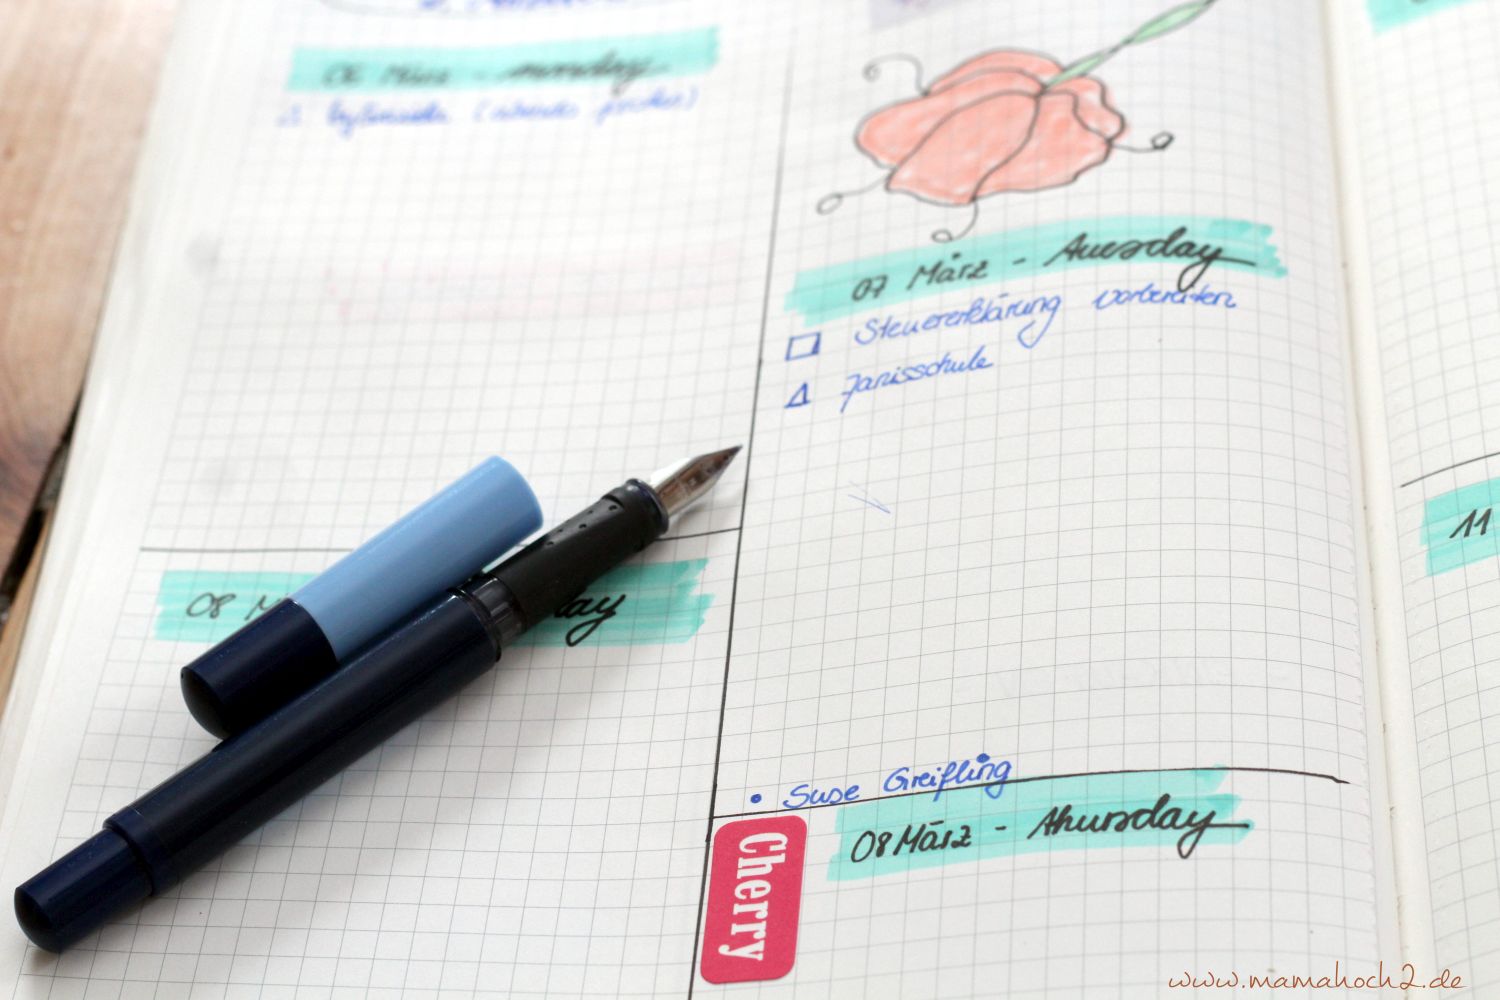 06 März - monday
07 März - tuesday
Steuererklärung vorbereiten
Janisschule
08 M
day
• Suse Greifling
08 März - thursday
Cherry
11
www.mamahoch2.de